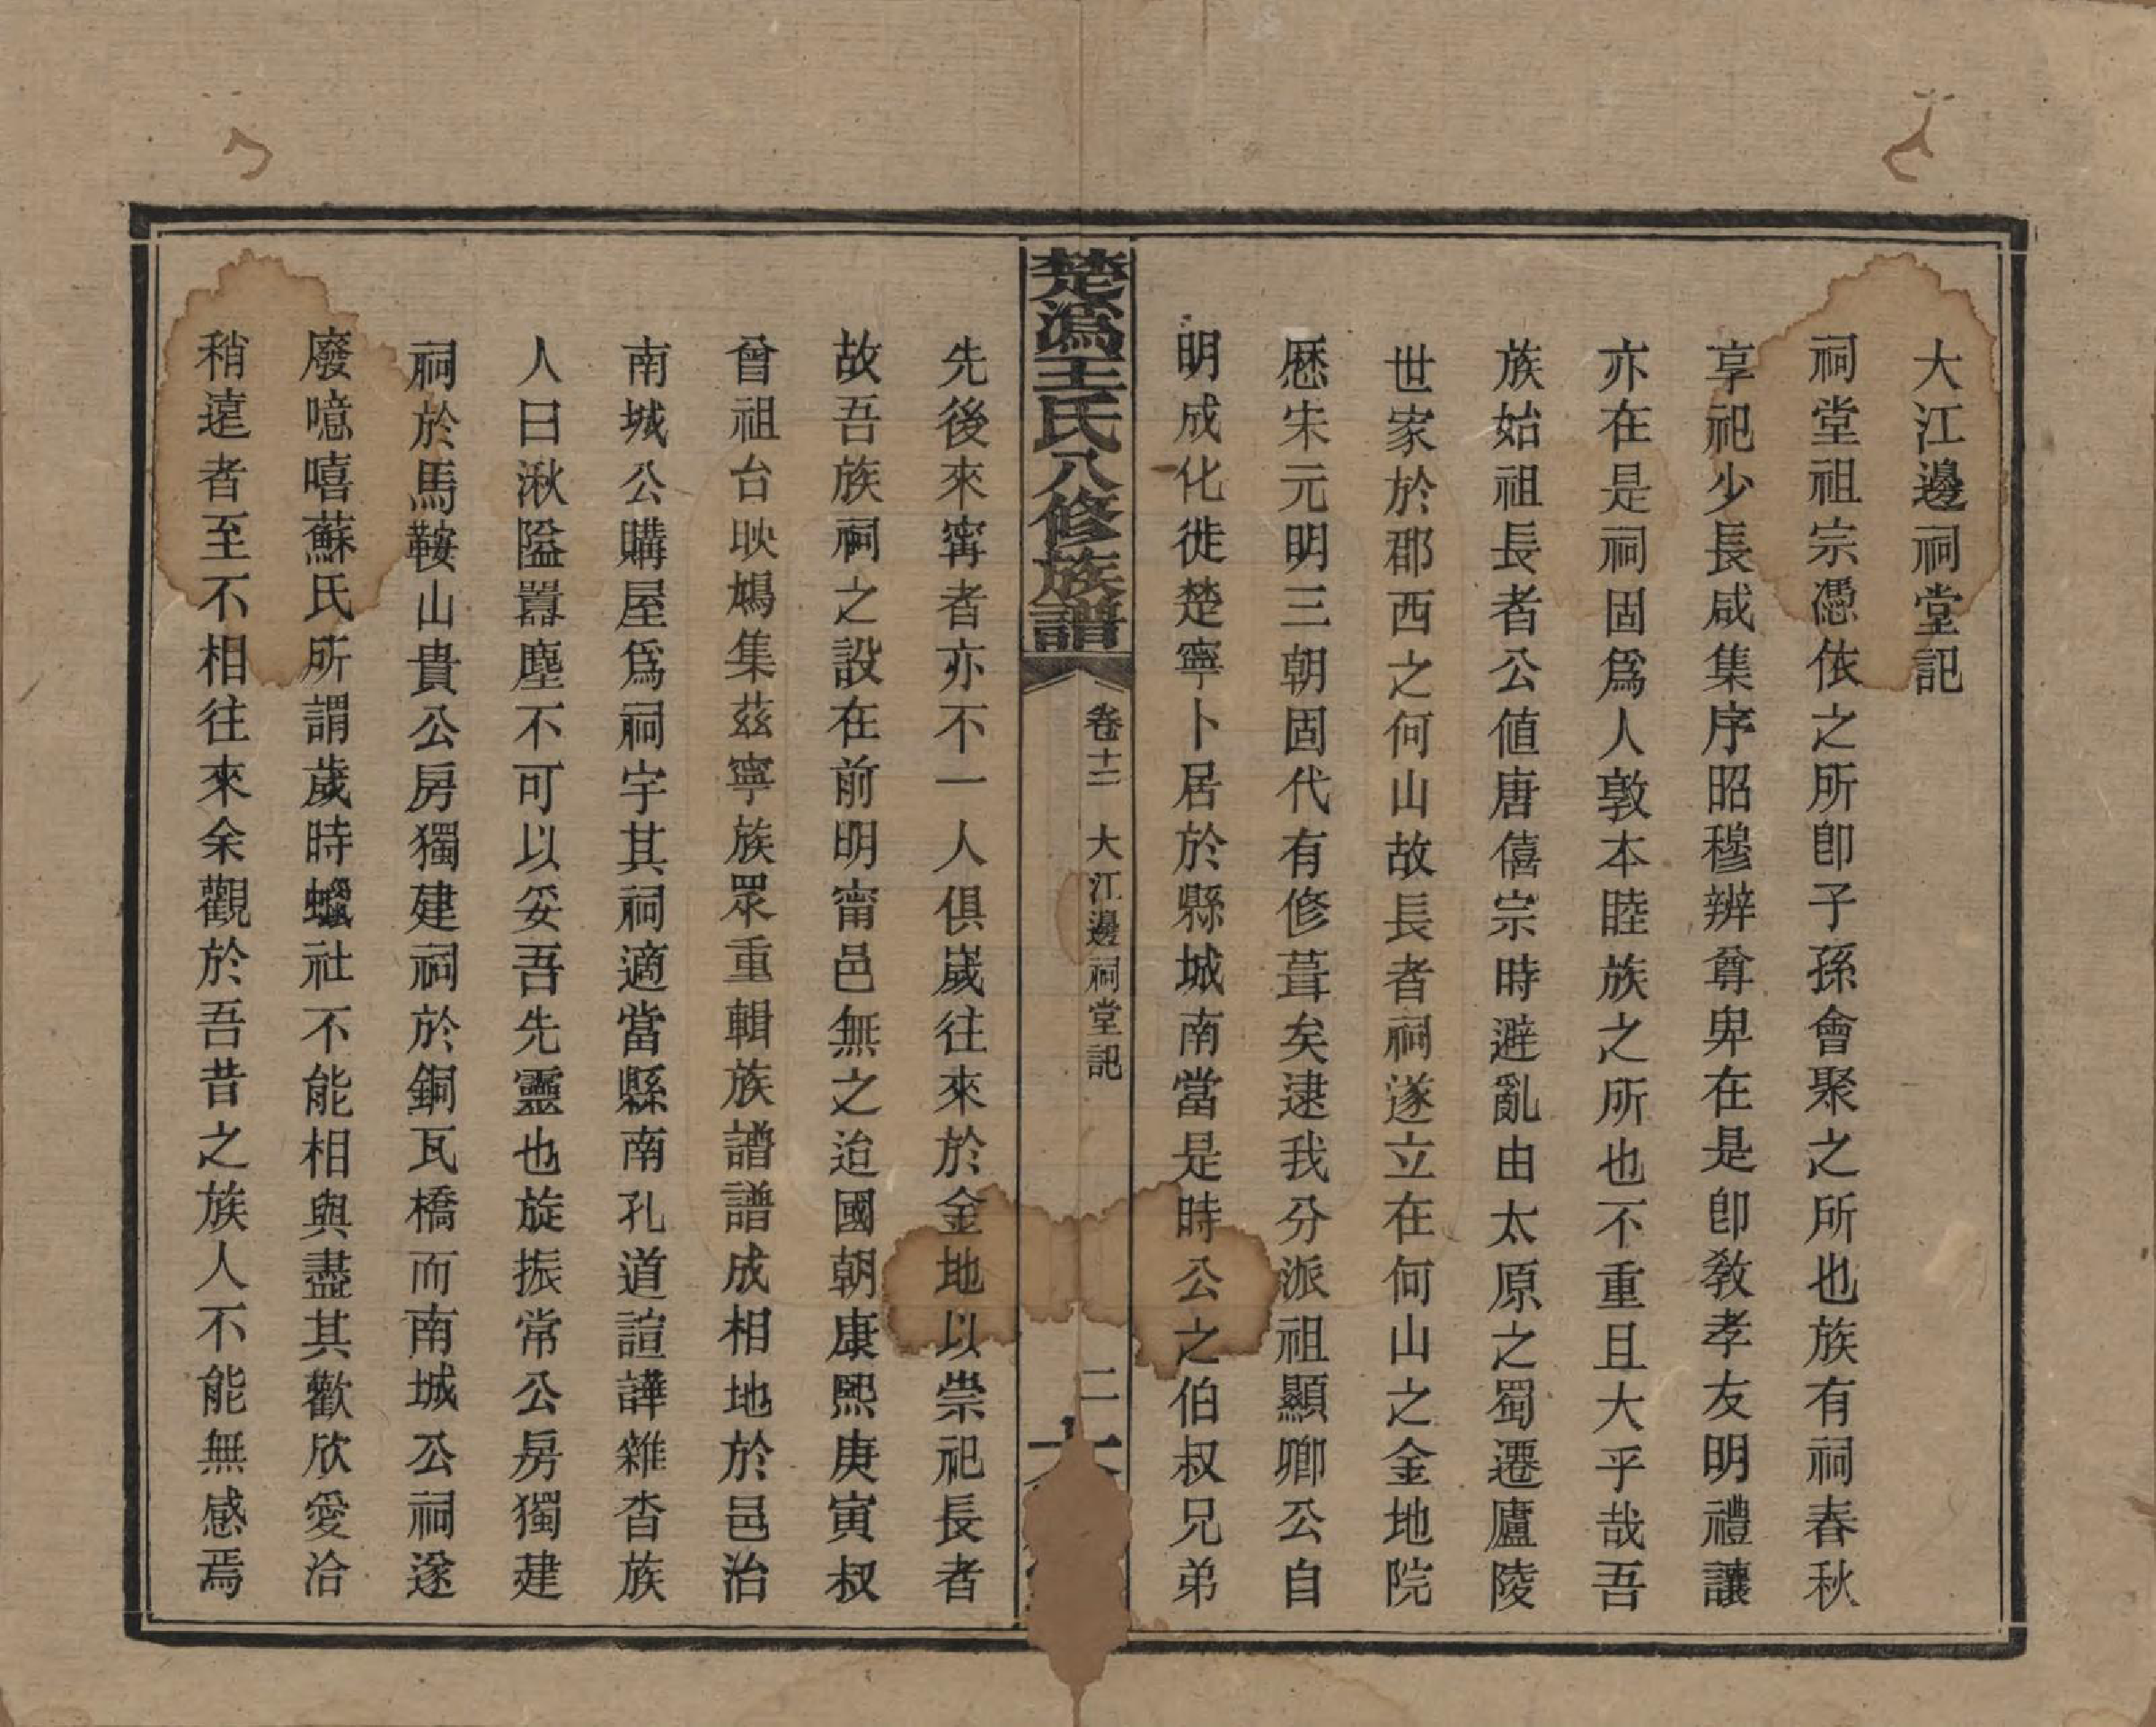 大江邊祠堂記
祠堂祖宗憑依之所卽子孫會聚之所也族有祠春秋
享祀少長咸集序昭穆辨尊卑在是卽敎孝友明禮讓
亦在是祠固爲人敦本睦族之所也不重且大乎哉吾
族始祖長者公值唐僖宗時避亂由太原之蜀遷廬陵
世家於郡西之何山故長者祠遂立在何山之金地院
歷宋元明三朝固代有修葺矣逮我分派祖顯卿公自
明成化徙楚寧卜居於縣城南當是時公之伯叔兄弟
楚溈王氏八修族譜
卷十二
大江邊祠堂記
二
先後來甯者亦不一人俱歲往來於金地以崇祀長者
故吾族祠之設在前明甯邑無之迨國朝康熙庚寅叔
曾祖台映鳩集茲寧族眾重輯族譜譜成相地於邑治
南城公購屋爲祠宇其祠適當縣南孔道諠譁雜杳族
人曰湫隘囂塵不可以妥吾先靈也旋振常公房獨建
祠於馬鞍山貴公房獨建祠於銅瓦橋而南城公祠遂
廢噫嘻蘇氏所謂歲時蠟社不能相與盡其歡欣愛洽
稍遠者至不相往來余觀於吾昔之族人不能無感焉